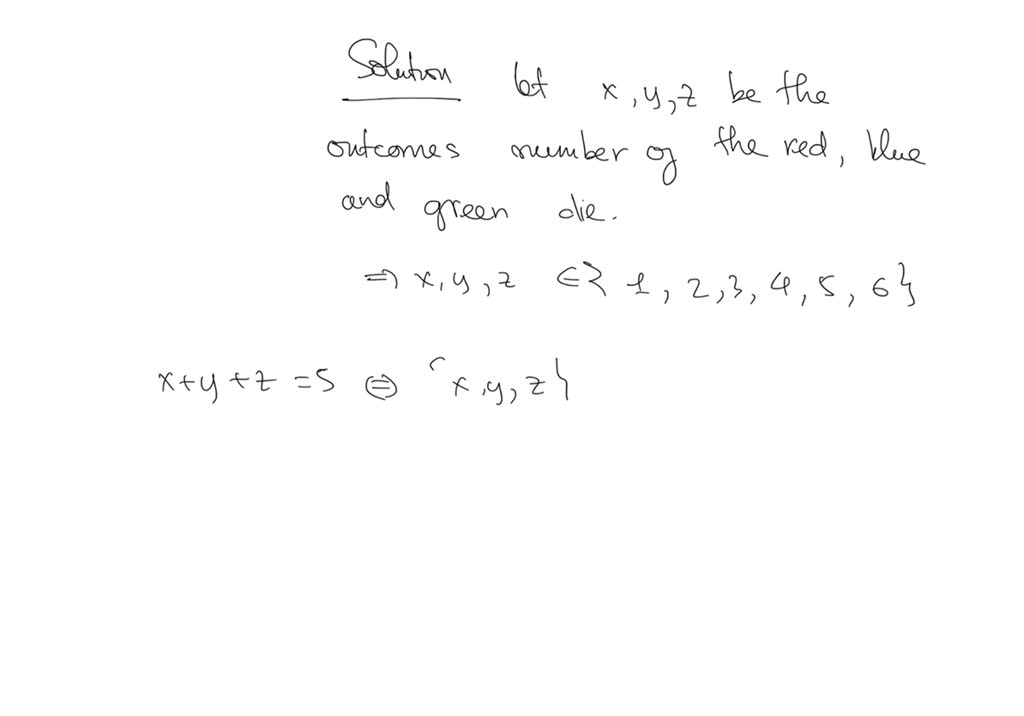 Solution let x, y, z be the
outcomes number of the red, blue
and green die.
⇒ x, y, z ∈ { 1, 2, 3, 4, 5, 6 }
x+y+z = 5 ⇔ { x, y, z }